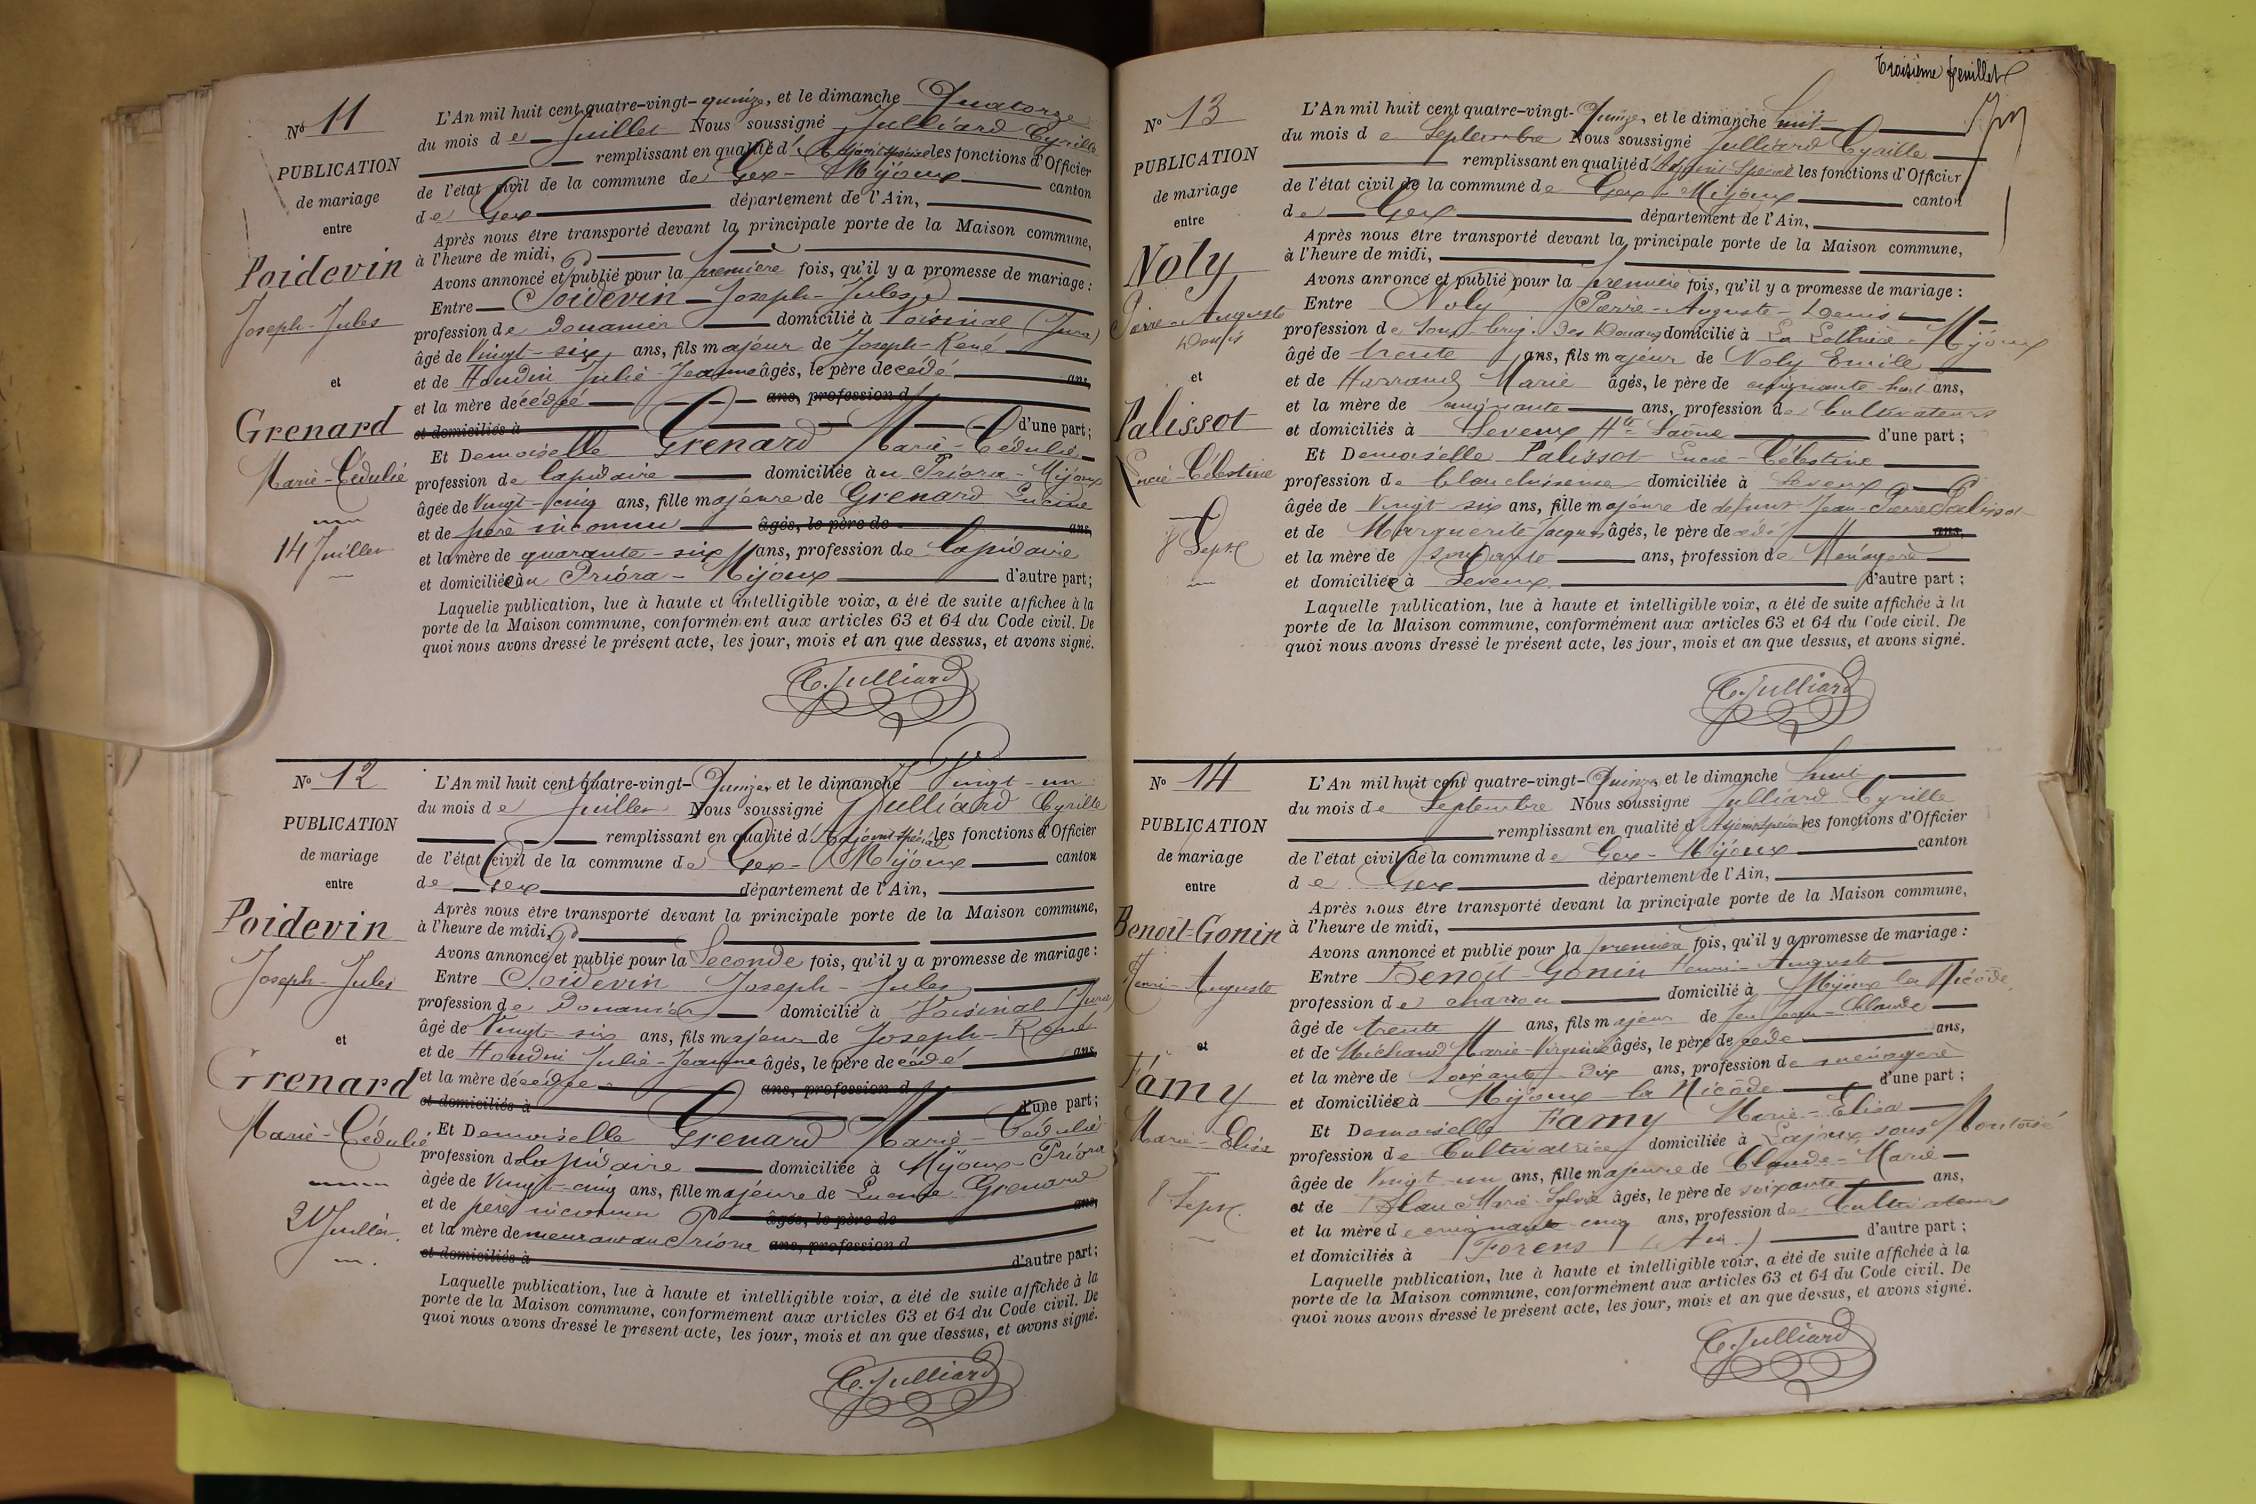 Nº 11
PUBLICATION
de mariage
entre
Poidevin
Joseph-Jules
et
Grenard
Marie-Cédulie
14 Juillet
L'An mil huit cent quatre-vingt-quinze, et le dimanche Quatorze
du mois de Juillet Nous soussigné Julliard Cyrille
remplissant en qualité d'Adjoint spécial les fonctions d'Officier
de l'état civil de la commune de Gex-Mijoux canton
de Gex département de l'Ain,
Après nous être transporté devant la principale porte de la Maison commune,
à l'heure de midi,
Avons annoncé et publié pour la première fois, qu'il y a promesse de mariage :
Entre Poidevin Joseph-Jules
profession de Douanier domicilié à Voisinal (Jura)
âgé de Vingt-six ans, fils majeur de Joseph-René
et de Houdin Julie-Jeanne âgés, le père décédé ans,
et la mère décédée ans, profession d
et domiciliés à d'une part;
Et Demoiselle Grenard Marie-Cédulie
profession de lapidaire domiciliée au Prióra-Mijoux
âgée de Vingt-cinq ans, fille majeure de Grenard Lucine
et de père inconnu âgés, le père de ans,
et la mère de quarante-six ans, profession de Lapidaire
et domiciliée au Prióra-Mijoux d'autre part;
Laquelle publication, lue à haute et intelligible voix, a été de suite affichée à la
porte de la Maison commune, conformément aux articles 63 et 64 du Code civil. De
quoi nous avons dressé le présent acte, les jour, mois et an que dessus, et avons signé.
C. Julliard
Nº 12
PUBLICATION
de mariage
entre
Poidevin
Joseph-Jules
et
Grenard
Marie-Cédulie
21 Juillet
L'An mil huit cent quatre-vingt-Quinze, et le dimanche Vingt-un
du mois de Juillet Nous soussigné Julliard Cyrille
remplissant en qualité d'Adjoint spécial les fonctions d'Officier
de l'état civil de la commune de Gex-Mijoux canton
de Gex département de l'Ain,
Après nous être transporté devant la principale porte de la Maison commune,
à l'heure de midi,
Avons annoncé et publié pour la Seconde fois, qu'il y a promesse de mariage :
Entre Poidevin Joseph-Jules
profession de Douanier domicilié à Voisinal (Jura)
âgé de Vingt-six ans, fils majeur de Joseph-René
et de Houdin Julie-Jeanne âgés, le père décédé ans,
et la mère décédée ans, profession d
et domiciliés à d'une part;
Et Demoiselle Grenard Marie-Cédulie
profession de lapidaire domiciliée à Mijoux-Prióra
âgée de Vingt-cinq ans, fille majeure de Grenard
et de père inconnu âgés, le père de ans,
et la mère demeurant au Prióra ans, profession d
et domiciliés à d'autre part;
Laquelle publication, lue à haute et intelligible voix, a été de suite affichée à la
porte de la Maison commune, conformément aux articles 63 et 64 du Code civil. De
quoi nous avons dressé le présent acte, les jour, mois et an que dessus, et avons signé.
C. Julliard
Troisième feuillet
Nº 13
PUBLICATION
de mariage
entre
Noly
Pierre-Auguste
Denis
et
Palissot
Lucie-Célestine
8 Sept
L'An mil huit cent quatre-vingt-Quinze, et le dimanche huit
du mois de Septembre Nous soussigné Julliard Cyrille
remplissant en qualité d'Adjoint Spécial les fonctions d'Officier
de l'état civil de la commune de Gex-Mijoux canton
de Gex département de l'Ain,
Après nous être transporté devant la principale porte de la Maison commune,
à l'heure de midi,
Avons annoncé et publié pour la première fois, qu'il y a promesse de mariage :
Entre Noly Pierre-Auguste-Denis
profession de Sous brig. des Douanes domicilié à La Mijoux
âgé de trente ans, fils majeur de Noly Emile
et de Harrand Marie âgés, le père de cinquante-huit ans,
et la mère de cinquante ans, profession de Cultivateurs
et domiciliés à Seveux Hte Saône d'une part;
Et Demoiselle Palissot Lucie-Célestine
profession de blanchisseuse domiciliée à Seveux
âgée de Vingt-six ans, fille majeure de défunt Jean-Pierre Palissot
et de Marguerite Jacques âgés, le père décédé ans,
et la mère de soixante ans, profession de Ménagère
et domiciliée à Seveux d'autre part;
Laquelle publication, lue à haute et intelligible voix, a été de suite affichée à la
porte de la Maison commune, conformément aux articles 63 et 64 du Code civil. De
quoi nous avons dressé le présent acte, les jour, mois et an que dessus, et avons signé.
C. Julliard
Nº 14
PUBLICATION
de mariage
entre
Benoit-Gonin
Henri-Auguste
et
Famy
Marie-Elisa
8 Sept.
L'An mil huit cent quatre-vingt-Quinze, et le dimanche huit
du mois de Septembre Nous soussigné Julliard Cyrille
remplissant en qualité d'Adjoint spécial les fonctions d'Officier
de l'état civil de la commune de Gex-Mijoux canton
de Gex département de l'Ain,
Après nous être transporté devant la principale porte de la Maison commune,
à l'heure de midi,
Avons annoncé et publié pour la première fois, qu'il y a promesse de mariage :
Entre Benoit-Gonin Henri-Auguste
profession de charron domicilié à Mijoux la Nicôde
âgé de trente ans, fils majeur de feu Jean-Claude
et de Michaud Marie-Virginie âgés, le père décédé ans,
et la mère de soixante dix ans, profession de ménagère
et domiciliée à Mijoux-la Nicôde d'une part;
Et Demoiselle Famy Marie-Elisa
profession de Cultivatrice domiciliée à Lajoux sous
âgée de Vingt-un ans, fille majeure de Claude-Marie
et de Blanc Marie-Sylvie âgés, le père de soixante ans,
et la mère de cinquante-cinq ans, profession de Cultivateurs
et domiciliés à Forens (Ain) d'autre part;
Laquelle publication, lue à haute et intelligible voix, a été de suite affichée à la
porte de la Maison commune, conformément aux articles 63 et 64 du Code civil. De
quoi nous avons dressé le présent acte, les jour, mois et an que dessus, et avons signé.
C. Julliard